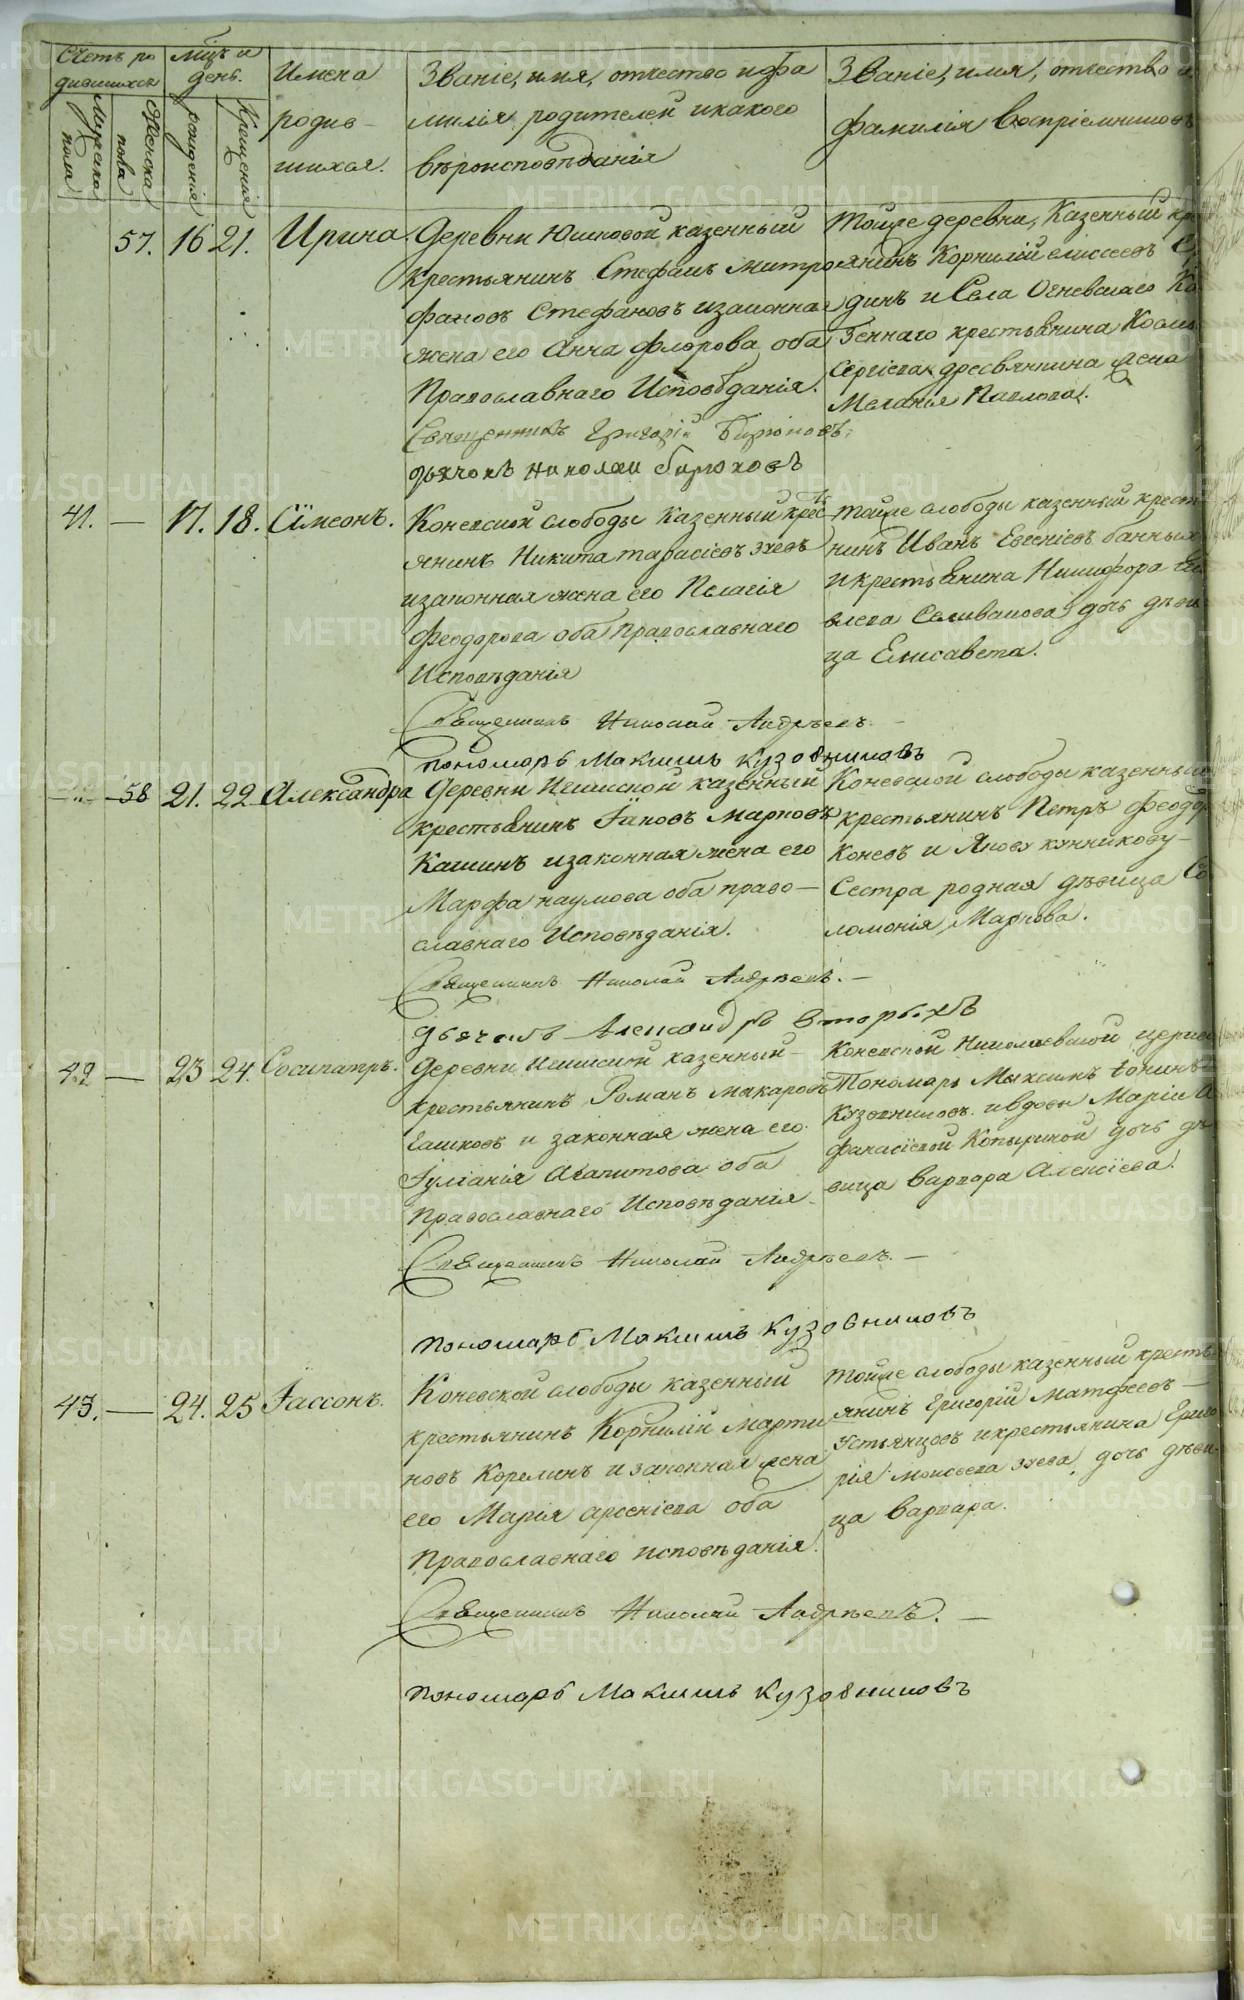 Счетъ ро
дившихся
Мужеска
пола
Женска
пола
Мцъ и
день.
рожденія
Крещенія
Имена
родив-
шихся.
Званіе, имя, отчество и фа
милія родителей и какого
вѣроисповѣданія
Званіе, имя, отчество и
фамилія воспріемниковъ
57. 16 21. Ирина
Деревни Юшковой казенный
крестьянинъ Стефанъ Митро
фановъ Стефановъ и законная
жена его Анна Флорова оба
Православнаго Исповѣданія.
Священникъ Григорій Бирюковъ.
Дьячокъ Николай Бирюковъ
Тойже деревни, Казенный кре
янинъ Корнилій елисеевъ
динъ и Села Огневскаго Ка
зеннаго крестьянина Козмы
Сергіева дресвянкина жена
Меланія Павлова.
41. — 17. 18. Сѵмеонъ.
Коневской слободы Казенный кресть
янинъ Никита тарасіевъ зуевъ
и законная жена его Пелагія
Феодорова оба Православнаго
Исповѣданія
Священникъ Николай Андрѣевъ.
пономарь Максимъ Кузовниковъ
тойже слободы казенный крест
нинъ Иванъ Евгеніевъ банных
и крестьянина Никифора
влева Селиванова дочь дѣви
ца Елисавета.
— 58 21. 22 Александра
Деревни казенный
крестьянинъ Іаковъ Марковъ
Кашинъ и законная жена его
Марфа наумова оба право—
славнаго Исповѣданія.
Священникъ Николай Андрѣевъ. —
Дьячекъ Александръ Вторыхъ
Коневской слободы казенный
крестьянинъ Петръ Феодор
Коневъ и Якову
Сестра родная дѣвица Со
ломонія Маркова.
42 — 23 24. Сосипатръ.
Деревни казенный—
крестьянинъ Романъ макаровъ
и законная жена его
Іуліанія Агапитова оба
Православнаго Исповѣданія
Священникъ Николай Андрѣевъ. —
пономарь Максимъ Кузовниковъ
Коневской Николаевской церкви
Пономарь Максимъ
Кузовниковъ и вдовы Маріи А
фанасіевой Копыриной дочь дѣ
вица Варвара Алексіева.
43. — 24. 25 Іассонъ.
Коневской слободы казенный
крестьянинъ Корнилій Марти
новъ Корелинъ и законная жена
его Марія арсеніева оба
Православнаго исповѣданія.
Священникъ Николай Андрѣевъ. —
пономарь Максимъ Кузовниковъ
тойже слободы казенный кресть
янинъ Григорій Матфеевъ —
Устьянцовъ и крестьянина Григо
рія моисеева зуева дочь дѣви
ца Варвара.
METRIKI.GASO-URAL.RU